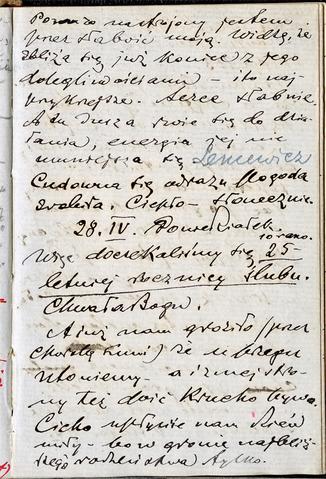 Ponuro nastrojony jestem
przez słabość moją. Widzę, że
zbliża się już koniec z jego
dolegliwościami – i to naj
przykrzejsze. Serce słabnie.
A tu dusza rwie się do dzia
łania, energia jej nie
umniejsza się
Cudowna się odrazu pogoda
zrobiła. Ciepło – słonecznie.
28. IV. Poniedziałek.
10 rano.
Więc doczekaliśmy się 25-
letniej rocznicy ślubu.
Chwała Bogu.
A już nam groziło (przez
chwilę) że u brzegu
utoniemy – a i z mej stro-
ny też dość krucho bywa.
Cicho upłynie nam dzień
miły – bo w gronie najbliż-
szego rodzeństwa tylko.